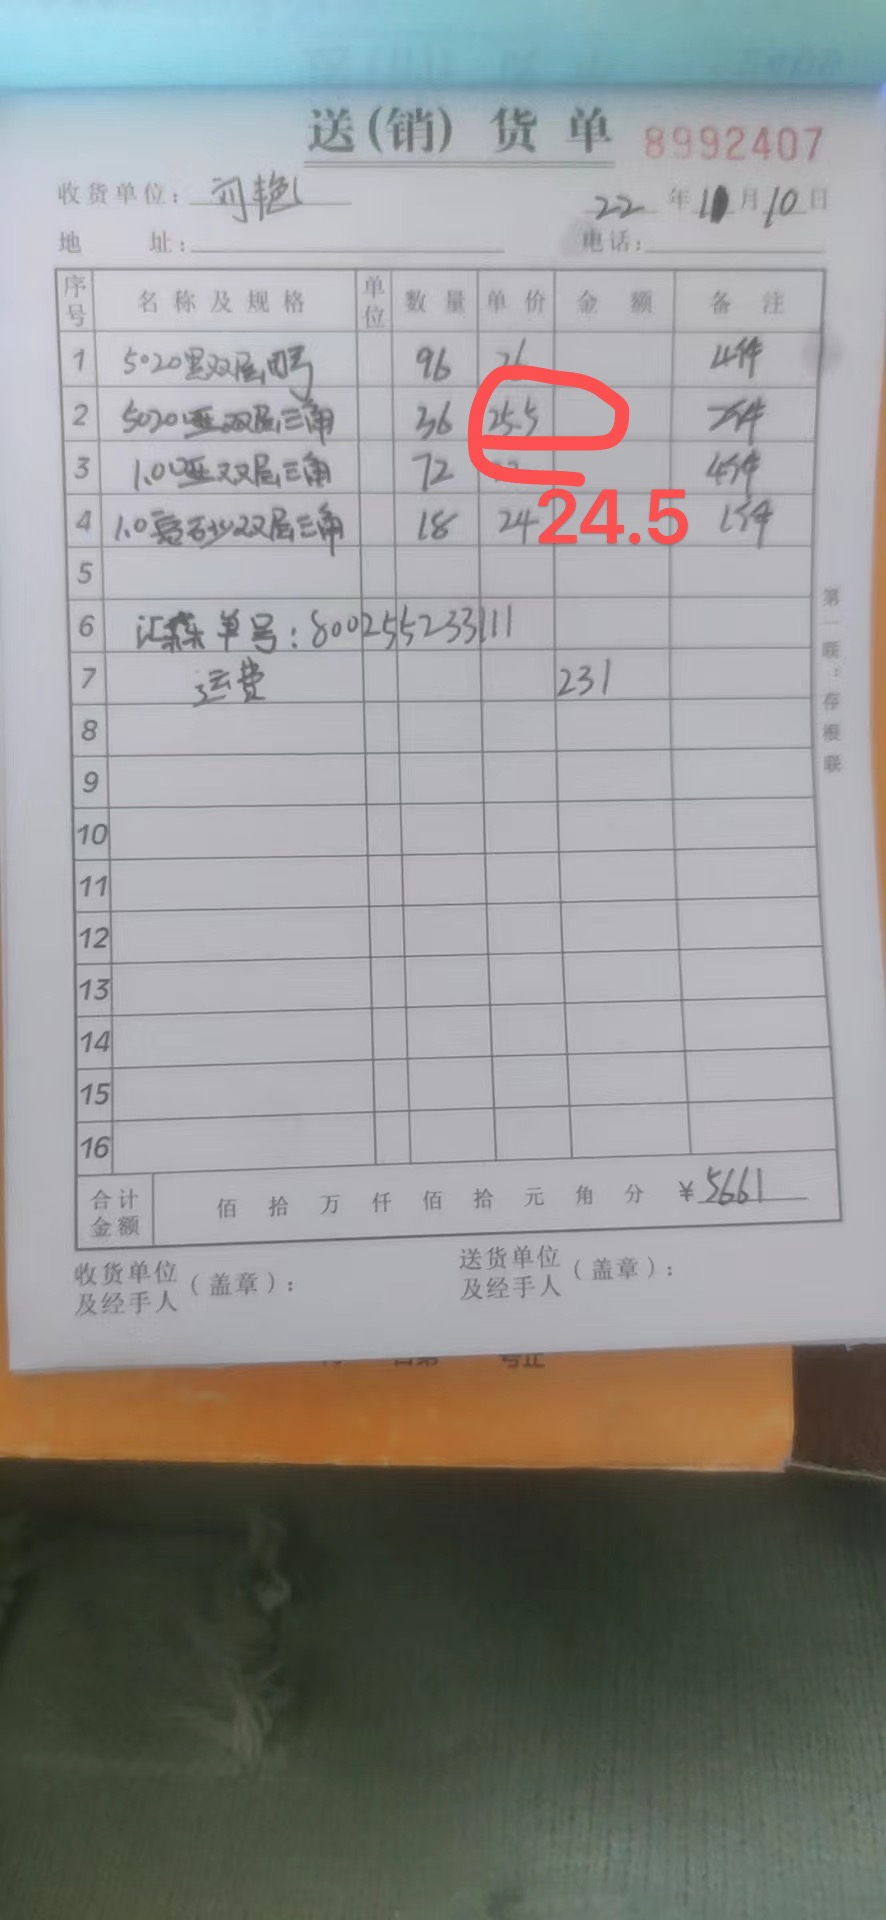 送(销)货单 8992407
收货单位: 刘艳 22年10月10日
地 址: 电话:
序号 名称及规格 单位 数量 单价 金额 备注
1 5020黑双层 96 26 4件
2 5020哑双层三角 36 25.5 2件
3 1.0哑双层三角 72 4件
24.5
4 1.0 双层三角 18 24 1件
5
6 汇森单号:800255233111
7 运费 231
8
9
10
11
12
13
14
15
16
合计金额 佰拾万仟佰拾元角分 ¥5661
收货单位及经手人(盖章): 送货单位及经手人(盖章):
第一联:存根联